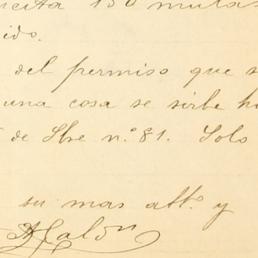 cita 150 mulas
ido.
del permiso que s
una cosa se sirbe ha
de Sbre n.º 81. Solo
su mas att.º y